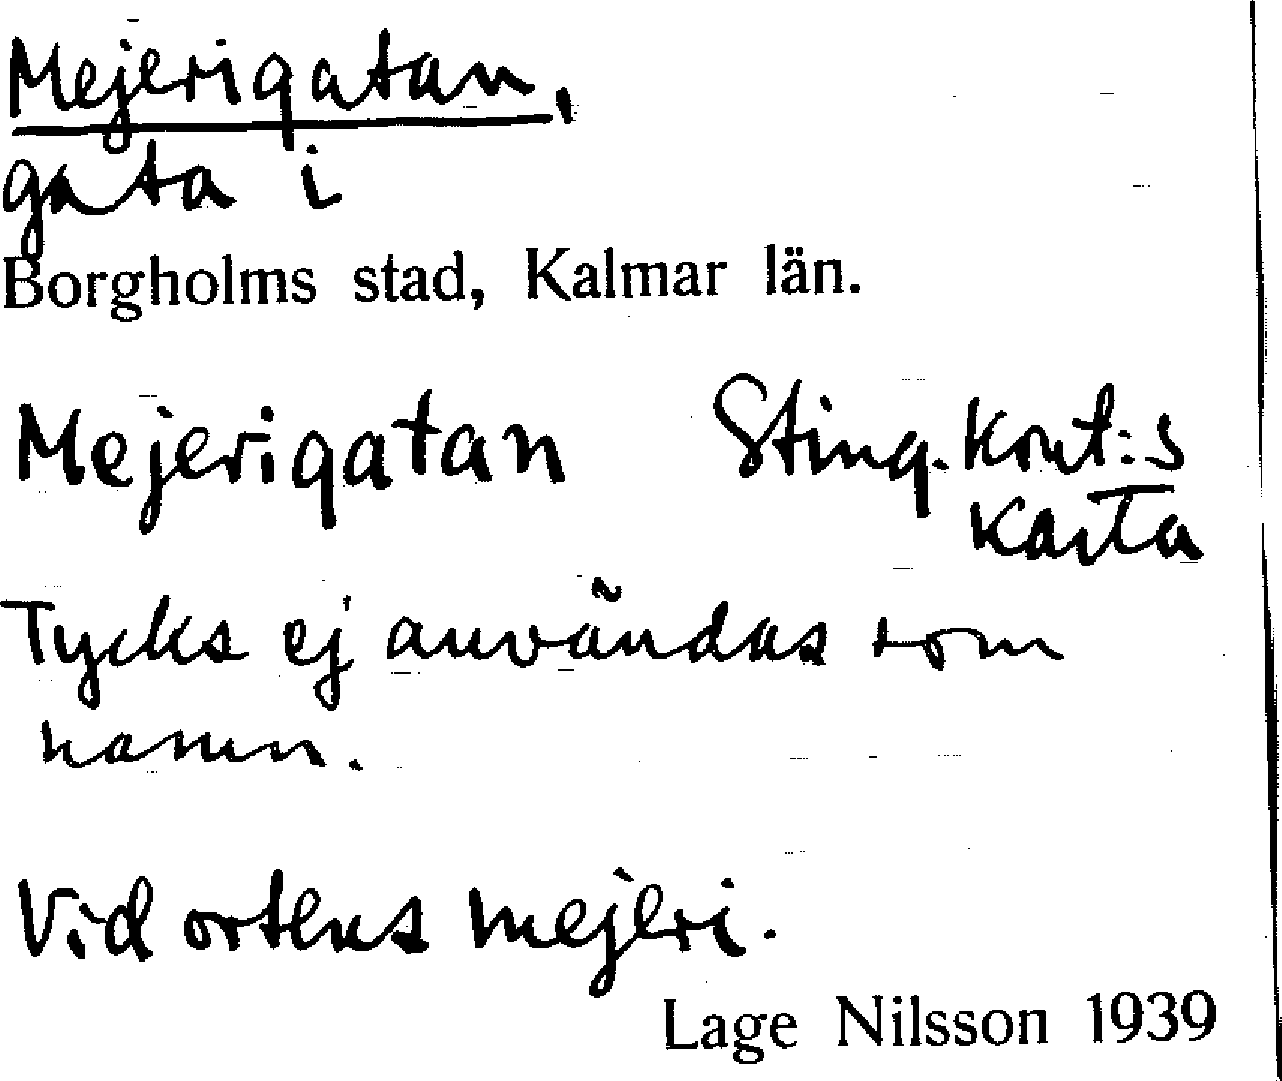 Mejerigatan,
gata i
Borgholms stad, Kalmar län.
Mejerigatan Sting. Kont:s
Karta
Tycks ej användas som
namn.
Vid ortens mejeri.
Lage Nilsson 1939